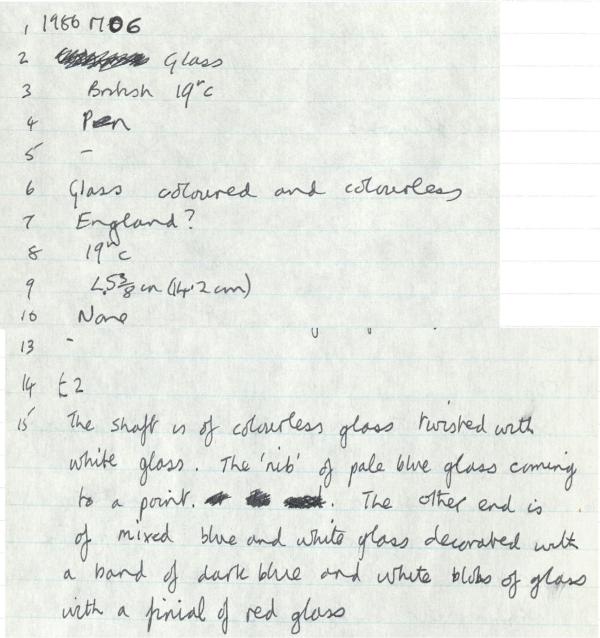 1 1986 M06
2 Glass
3 British 19th C
4 Pen
5 -
6 Glass coloured and colourless
7 England?
8 19th C
9 L.5 3/8 in (14.2 cm)
10 None
13 -
14 £2
15 The shaft is of colourless glass twisted with
white glass. The 'nib' of pale blue glass coming
to a point. The other end is
of mixed blue and white glass decorated with
a band of dark blue and white blobs of glass
with a finial of red glass